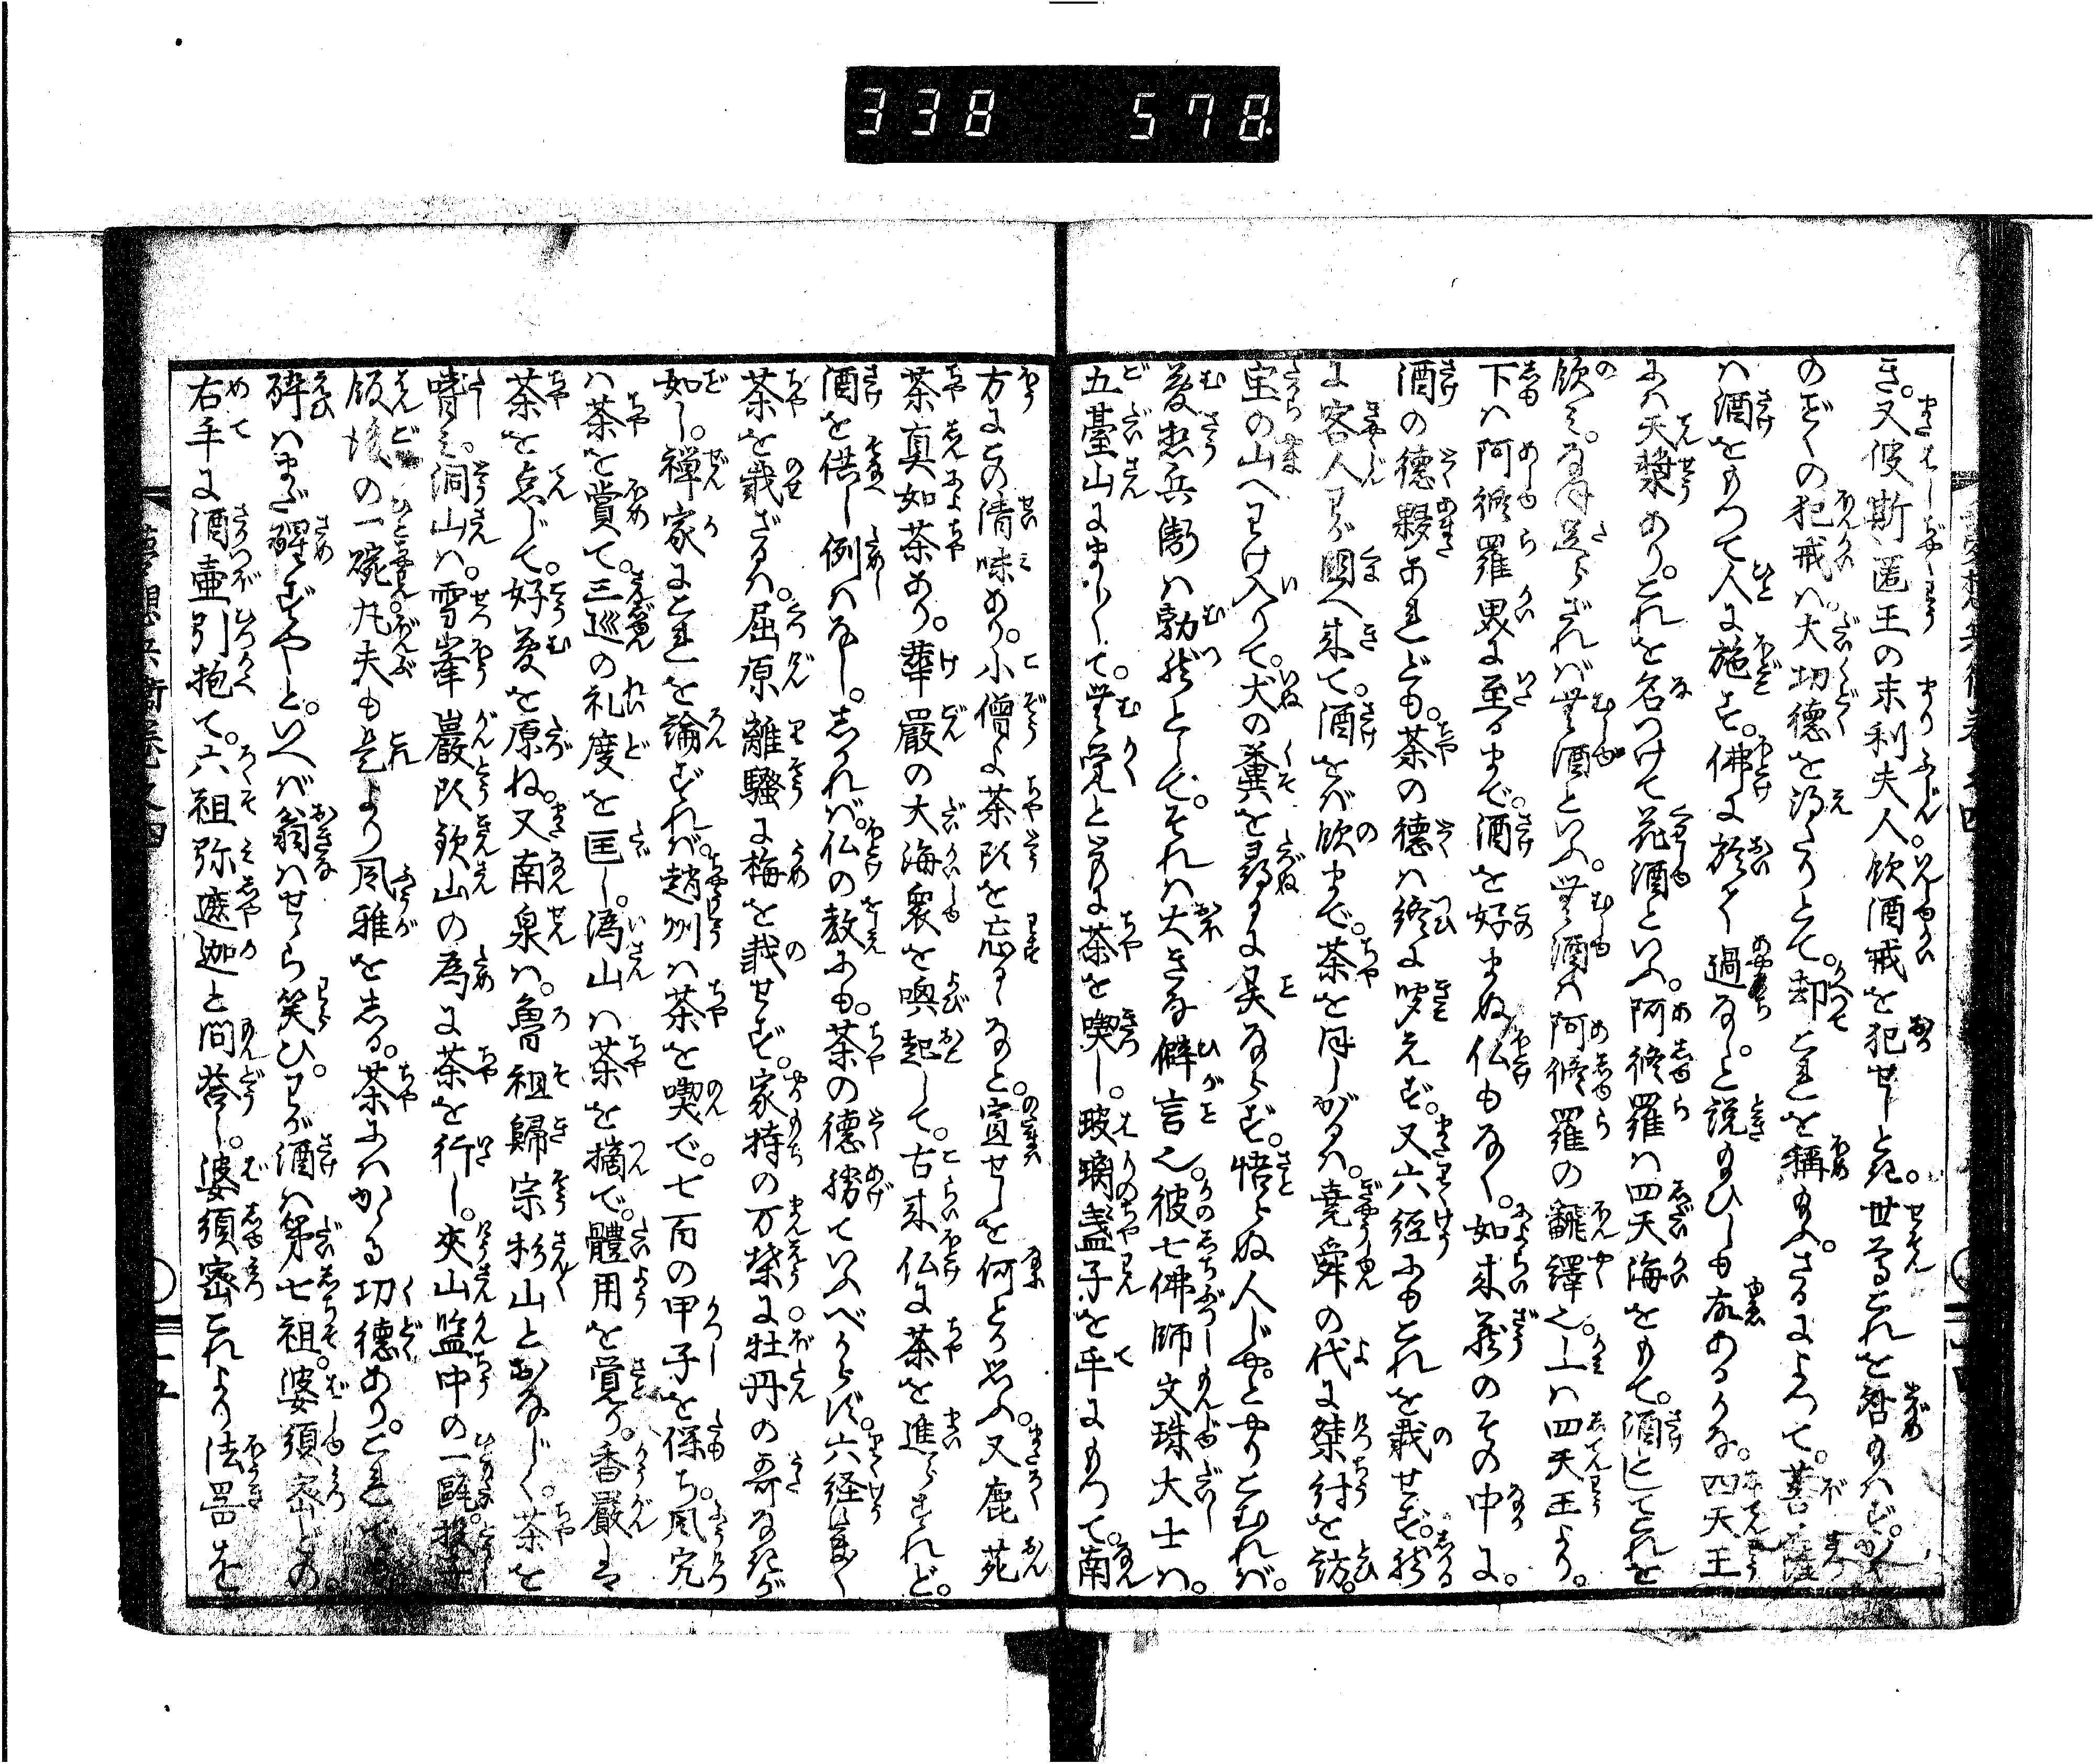 338 578
き。又波斯匿王の末利夫人。飲酒戒を犯せしとき。世尊これを咎め給はず。
のぞくの犯戒は。大切徳を得たりとて。却てこれを稱給ふ。さるによつて。菩薩
は酒をもつて人に施す。佛に於て過なしと説給ひしも故あるかな。四天王
には天漿あり。これを名つけて花酒といふ。阿修羅は四天海をもて。酒としてこれを
飲に。なほ足らざれば無酒といふ。無酒は阿修羅の飜繹也。上は四天王より。
下は阿修羅界に至るまで。酒を好まぬ仏もなく。如来蔵のその中に。
酒の徳夥あれども。茶の徳は終に聞えず。又六経にもこれを載せず。
に客人わが國へ来て。酒をば飲まで。茶を ほしがるは。堯舜の代に桀紂を訪。
宝の山へわけ入りて。犬の糞を尋るに異ならず。悟らぬ人じやとやりこむれば。
夢想兵衛は勃然として。それは大きな僻言也。彼七佛師文珠大士は。
五臺山にまし〳〵て。無覚といふに茶を喫し。玻璃盞子を手にもつて。南
方にこの清味あり。小僧よ茶以を忘るゝなと。宣せしを何とか思ふ。又鹿苑
茶真如茶あり。華嚴の大海衆を喚起して。古来仏に茶を進らすれど。
酒を供し例はなし。しかれば。仏の教にも。茶の徳勝ていふべからず。六経に
茶を載ざるは。屈原離騒に梅を載せず。家持の万葉に牡丹の哥なきが
如し。禅家にこれを論ずれば。趙州は茶を喫で。七百の甲子を保ち。風穴
は茶を賞て。三巡の礼度を匡し。潙山は茶を摘で。體用を覚り。香嚴は
茶を点じて。好夢を原ね。又南泉は。魯祖歸宗杉山とおなじく。茶を
嘗。洞山は。雪峯巖頭欽山の為に茶を行し。夾山盌中の一甌。
飯後の一碗。凡夫も是より風雅をしる。茶にはかゝる功徳あり。これ
酔はまだ醒ずやと。いへば翁はせゝら笑ひ。わが酒は第七祖。婆須密
右手に酒壷引抱て。六祖弥遮迦と問荅し。婆須密これより法器を
夢想兵衛巻之四